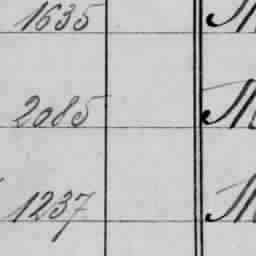 1635 M
2085 M
1237 M